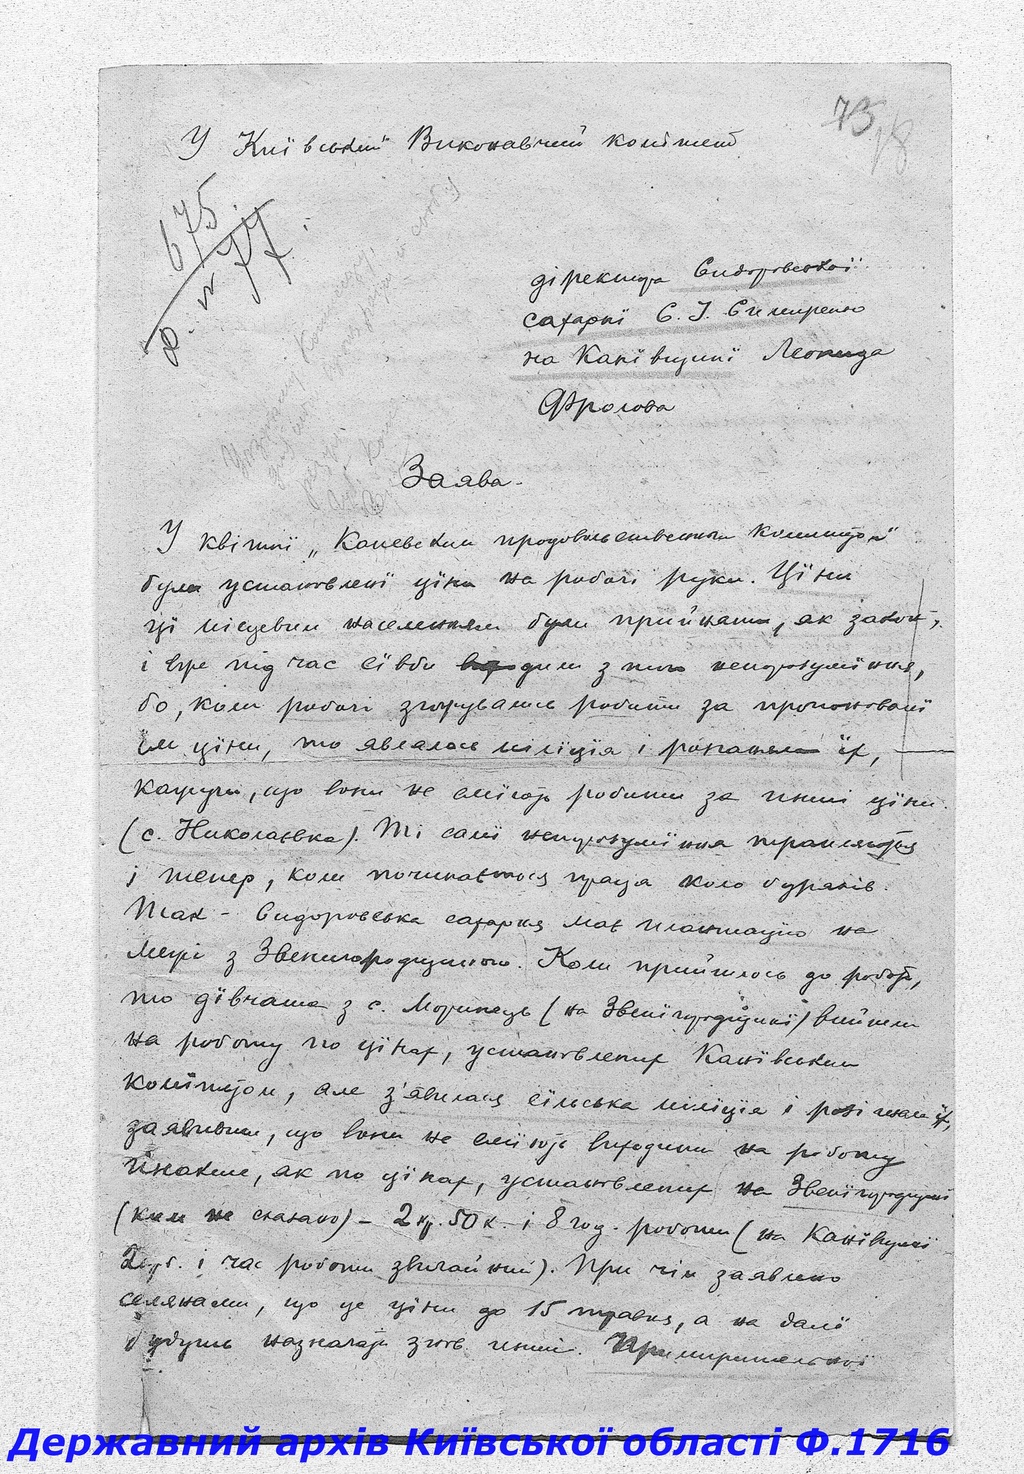 73
18
У Київський Виконавчий комітет
675
Р. N 77
діректора Сидоровської
сахарні С. І. Симиренко
на Канівщині Леонида
Фролова
Заява.
У квітні „Каневским продовольственным комитетом"
були установлені ціни на робочі руки. Ціни
ці місцевим населенням були прийняти, як закон,
і вже під час сівби з того непорозуміння,
бо, коли робочі згожувались робити за пропоновані
їм ціни, то являлась міліція і розганяла їх,
кажучи, що вони не сміють робити за инші ціни
(с. Николаєвка). Ті самі непорозуміння трапляються
і тепер, коли починається праця коло буряків.
Так - Сидоровська сахарня має плантацію на
межі з Звенигородщиною. Коли прийшлось до роботи,
то дівчата з с. Моринець (на Звенігородщині) вийшли
на роботу по цінах, установлених Канівським
комітетом, але з'явилася сільська міліція і розігнала їх,
заявивши, що вони не сміють виходити на роботу
інакше, як по цінах, установлених на Звенігородщині
(ким не сказано) - 2 кр. 50 к. і 8 год. роботи (на Канівщині
2 кр. і час роботи звичайний). При чім заявлено
селянами, що це ціни до 15 травня, а на далі
будуть назначати знов инші. Примирительної
Державний архів Київської області Ф.1716